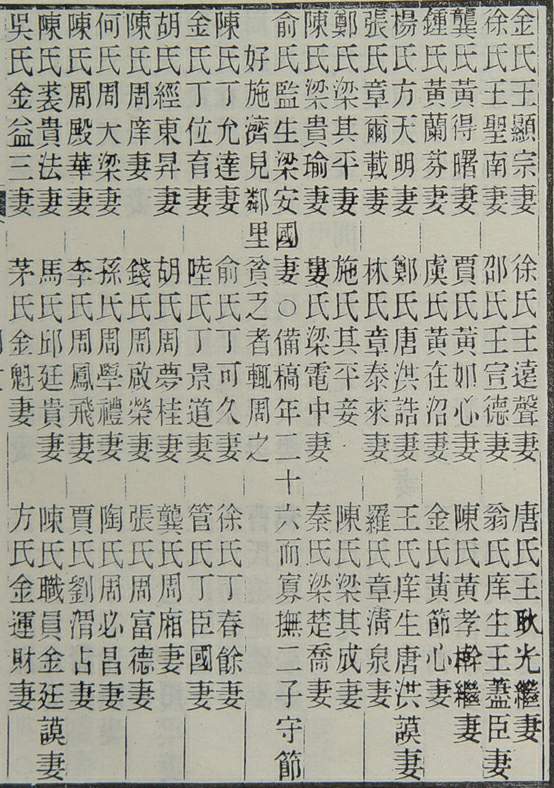 金氏王顯宗妻 徐氏王遠聲妻 唐氏王耿光繼妻
徐氏王聖南妻 邵氏王宣德妻 翁氏庠生王藎臣妻
龔氏黃得曙妻 賈氏黃如心妻 陳氏黃孝榦繼妻
鍾氏黃蘭芬妻 虞氏黃在沼妻 金氏黃節心妻
楊氏方天明妻 鄭氏唐洪誥妻 王氏庠生唐洪謨妻
張氏章爾載妻 林氏章泰來妻 羅氏章淸泉妻
鄭氏梁其平妻 施氏其平妾 陳氏梁其成妻
陳氏梁貴瑜妻 婁氏梁電中妻 秦氏梁楚喬妻
俞氏監生梁安國妻○備稿年二十六而寡撫二子守節
好施濟見鄰里貧乏者輒周之
陳氏丁允達妻 俞氏丁可久妻 徐氏丁春餘妻
金氏丁位育妻 陸氏丁景道妻 管氏丁臣國妻
胡氏經東昇妻 胡氏周夢桂妻 龔氏周廂妻
陳氏周庠妻 錢氏周啟榮妻 張氏周富德妻
何氏周大梁妻 孫氏周學禮妻 陶氏周必昌妻
陳氏周殿華妻 李氏周鳳飛妻 賈氏劉渭占妻
陳氏裘貴法妻 馬氏邱廷貴妻 陳氏職員金廷謨妻
吳氏金益三妻 茅氏金魁妻 方氏金運財妻